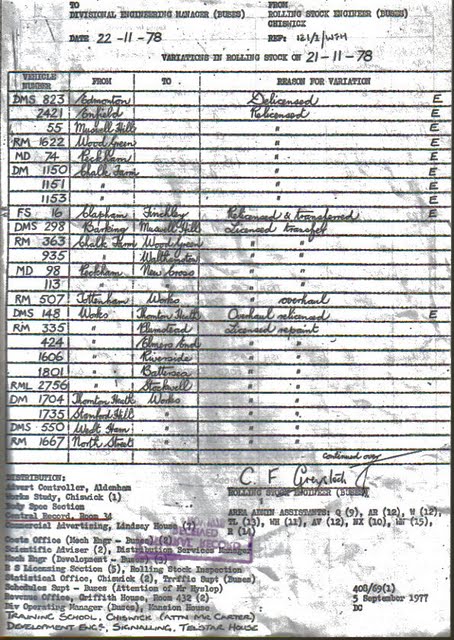 TO FROM
DIVISIONAL ENGINEERING MANAGER (BUSES) ROLLING STOCK ENGINEER (BUSES)
CHISWICK
DATE 22-11-78 REF: 121/2/WFH
VARIATIONS IN ROLLING STOCK ON 21-11-78
VEHICLE NUMBER FROM TO REASON FOR VARIATION
DMS 823 Edmonton Delicensed E
2421 Enfield Relicensed E
55 Muswell Hill " E
RM 1622 Wood Green " E
MD 74 Peckham " E
DM 1150 Chalk Farm " E
1151 " " E
1153 " " E
FS 16 Clapham Finchley Relicensed & transferred E
DMS 298 Barking Muswell Hill Licensed transfer
RM 363 Chalk Farm Wood Green " "
935 " Walthamstow " "
MD 98 Peckham New Cross " "
113 " " " "
RM 507 Tottenham Works " overhaul
DMS 148 Works Thornton Heath Overhaul relicensed E
RM 335 " Plumstead Licensed repaint
424 " Elmers End " "
1606 " Riverside " "
1801 " Battersea " "
RML 2756 " Stockwell " "
DM 1704 Thornton Heath Works " "
1735 Stamford Hill " " "
DMS 550 West Ham " " "
RM 1667 North Street " " "
continued over
C F Greystock
ROLLING STOCK ENGINEER (BUSES)
DISTRIBUTION:
Advert Controller, Aldenham
Works Study, Chiswick (1)
Body Spec Section
Central Record, Room 34
Commercial Advertising, Lindsay House
AREA ADMIN ASSISTANTS: Q (9), AR (12), W (12),
TL (13), WH (11), AV (12), NX (10), (15),
R (14)
Costs Office (Mech Engr - Buses)
Scientific Adviser (2), Distribution Services Manager
Mech Engr (Development - Buses)
R S Licence Section (5), Rolling Stock Inspection
Statistical Office, Chiswick (2), Traffic Supt (Buses)
Schedules Supt - Buses (Attention of Mr Hyslop)
Revenue Office, Griffith House, Room 432 (2)
Div Operating Manager (Buses), Mansion House
408/69(1)
5 September 1977
DC
TRAINING SCHOOL, CHISWICK (ATTN MR CARTER)
DEVELOPMENT ENGR, SIGNALLING, TELSTAR HOUSE